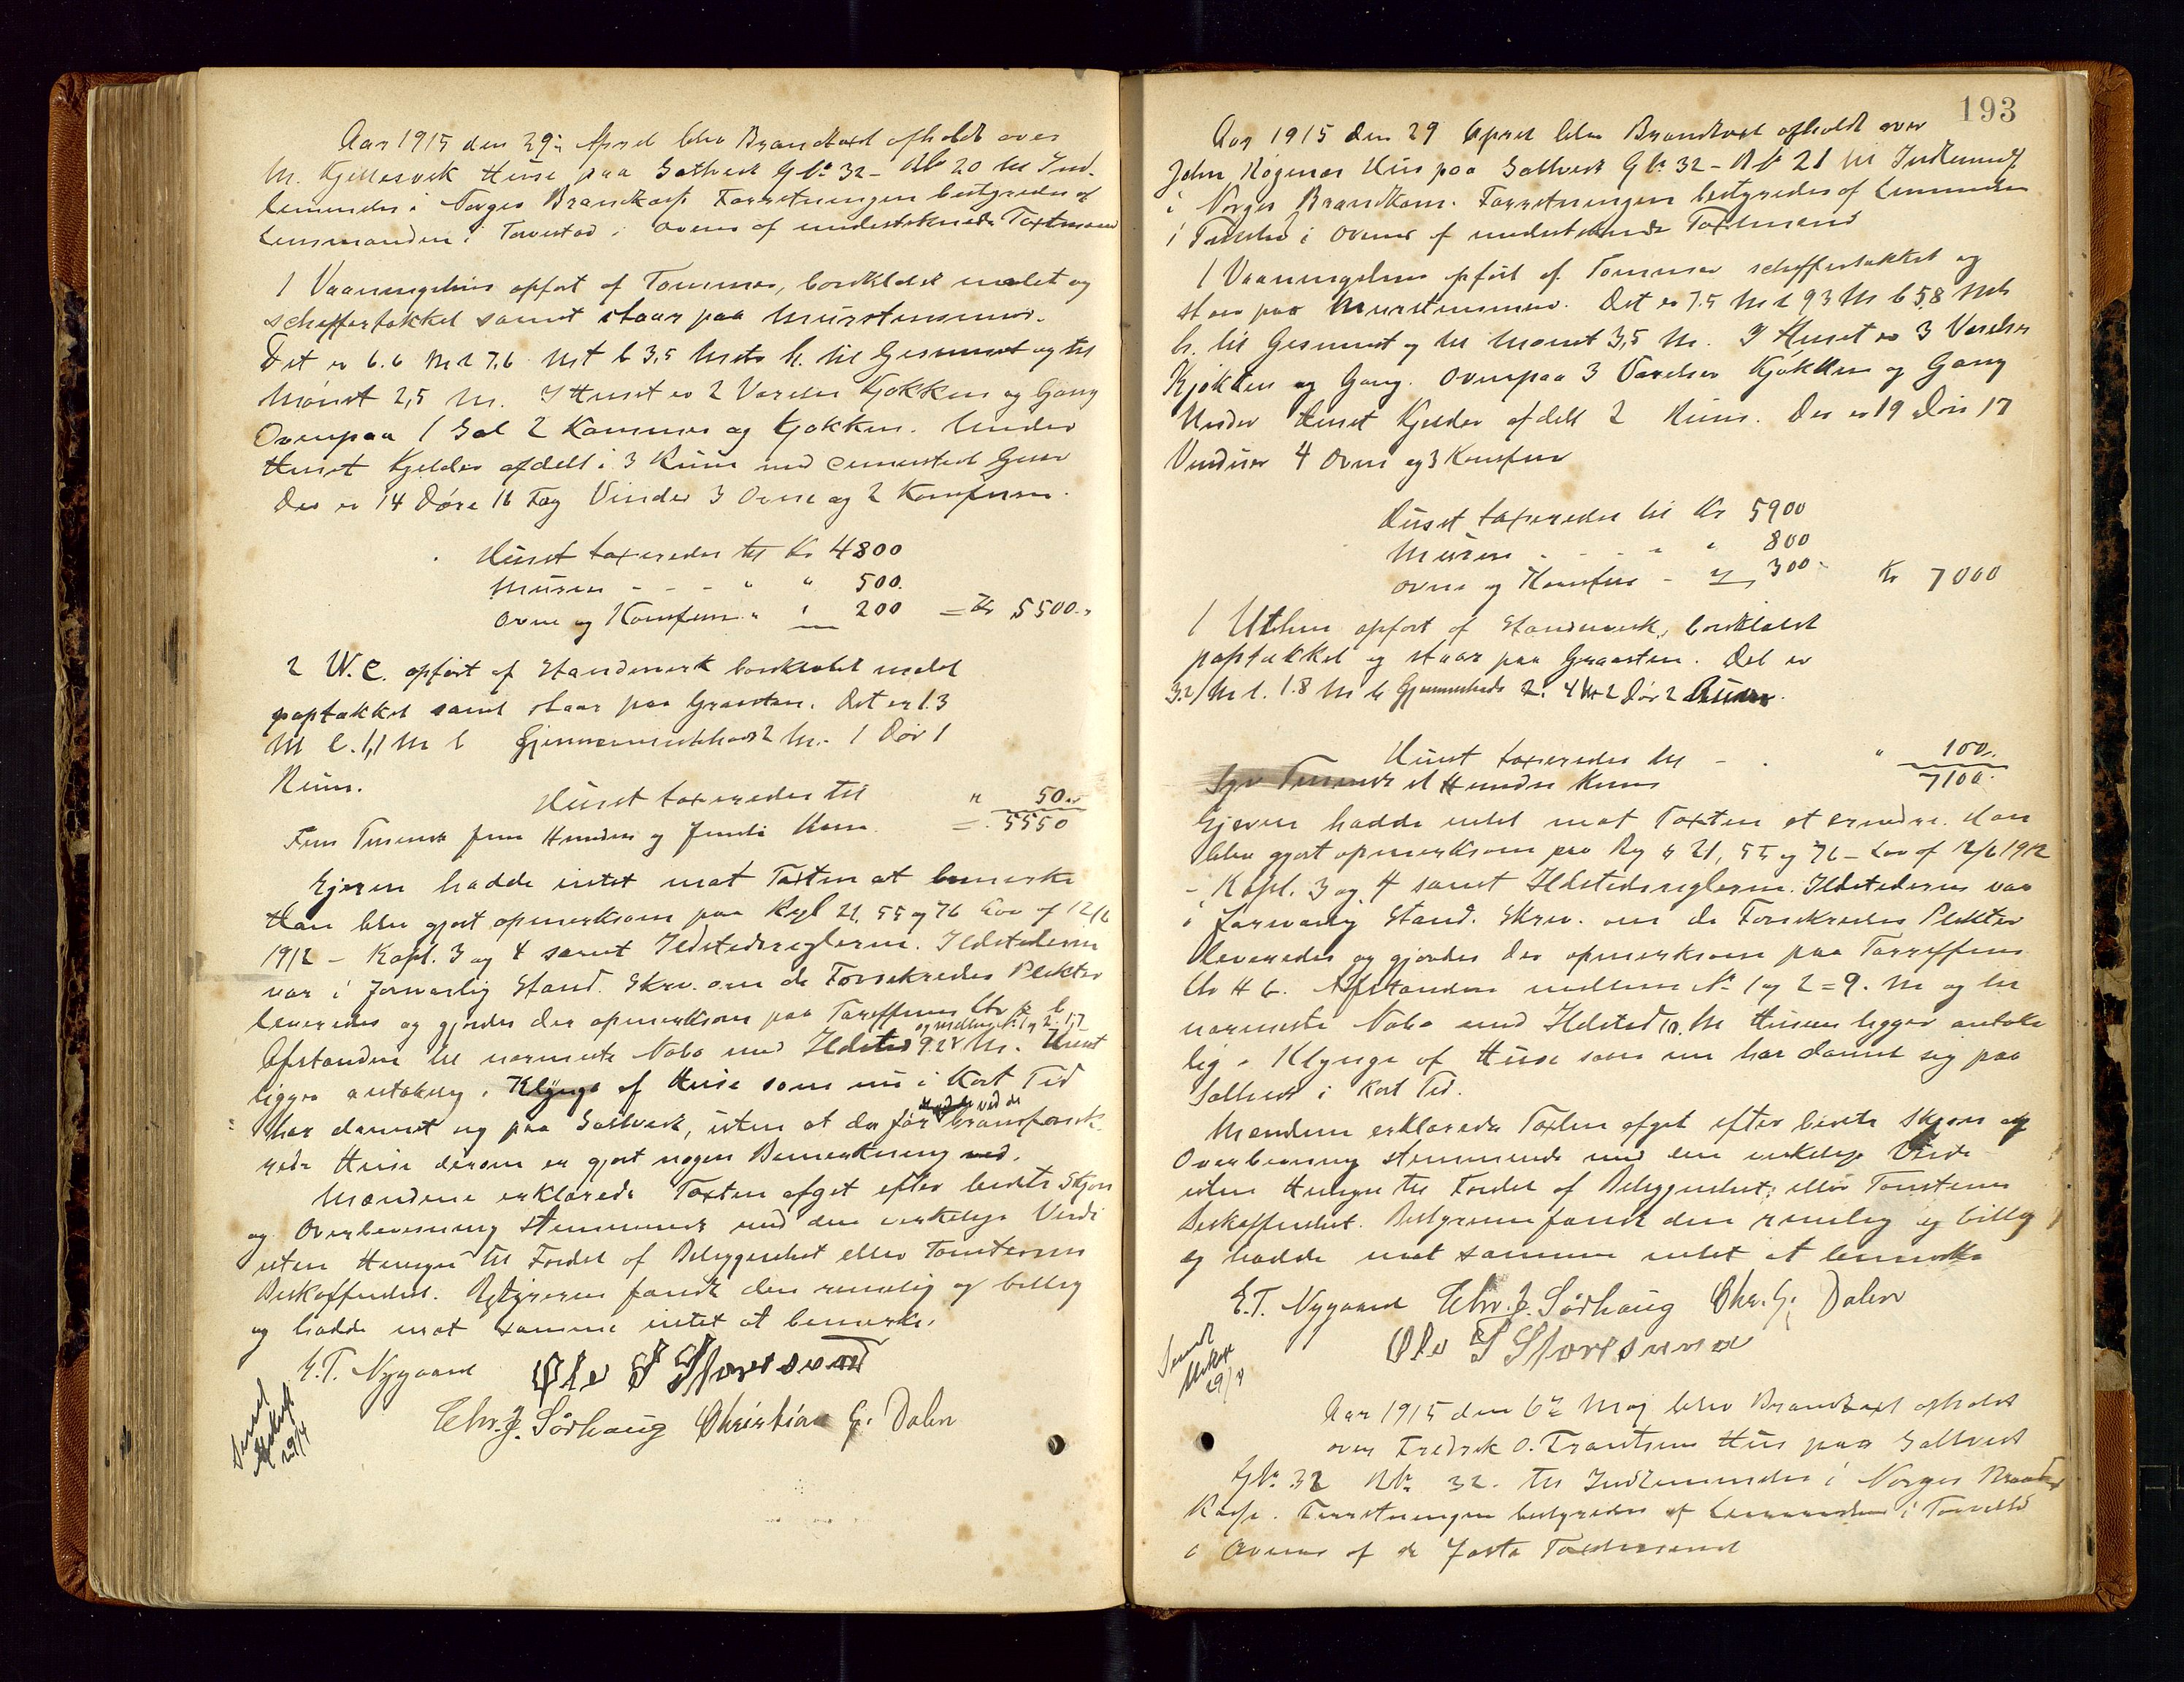 Aar 1915 den 29 April blev Brandtaxt afholdt over
M. Kjellesvik Huse paa Saltvest Gbr 32 - Nb 20 til Ind-
lemmelse i Norges Brandkasse Forretningen bestyredes af
Lensmanden i Torvestad i Overv af undertegnede Taxtmænd
1 Vaaningshus opført af Tømmer, bordklædt malet og
schiffertækket samt staar paa Murstensmur.
Det er 6.6 M l 7,6 Mt b 3,5 Mets h. til Gesimset og til
Mønet 2,5 M. I Huset er 2 Værelser Kjøkken og Gang
Ovenpaa 1 Sal 2 Kammer og Kjøkken. Under
Huset Kjelder afdelt i 3 Rum med cementert Gulv
Der er 14 Døre 16 Fag Vinder 3 Ovne og 2 Komfurer.
Huset taxeredes til Kr 4800
Muren - - - " " 500.
Ovne og Komfurer " " 200 = Kr 5500.
2 W.C. opført af Standverk bordklædt malet
paptækket samt staar paa Graasten. Det er 1.3
M l. 1,1 M b Gjennemsnitshøide 2 M. 1 Dør 1
Rum.
Huset taxeredes til " 50
Fem Tusende fem Hundre og femti Kroner = 5550
Ejeren hadde intet mot Taxten at bemerke
Han blev gjort opmerksom paa Regl 21, 55 og 76 Lov af 12/6
1912 - Kapt. 3 og 4 samt Ildstedsreglerne. Ildstederne
var i forsvarlig Stand. Skrv. om de Forsikredes Plikter
leveredes og gjordes der opmerksom paa Tariffens Litr H b
og mellem N 1 og 2. 17
Afstanden til nærmeste Nabo med Ildsted 9.28 M. Huset
ligger antakelig i Klynge af Huse som nu i kort Tid
har dannet sig paa Saltvest, uten at der før ved de brandforsik-
rede Huse derom er gjort nogen Bemerkning
Mændene erklærede Taxten afget efter bedste Skjøn
og Overbevisning stemmende med den virkelige Verdi
uten Hensyn til Fordel af Beliggenhet eller Tomternes
Beskaffenhet. Bestyreren fandt den rimelig og billig
og hadde mot samme intet at bemerke.
E. T. Nygaard Ole T Storesund
Chr. J. Sørhaug Christian G. Dalen
Sendt
Utskrift
29/4
193
Aar 1915 den 29 April blev Brandtaxt afholdt over
John Hus paa Saltvest Gbr 32 - Nb 21 til Indlemmelse
i Norges Brandkasse. Forretningen bestyredes af Lensmanden
i Torvestad i Overvær af undertegnede Taxtmænd
1 Vaaningshus opført af Tømmer schiffertækket og
staar paa Murstensmur. Det er 7.5 M l 9 3 M b 5.8 Mts
h. til Gesimset og til Mønet 3,5 M. I Huset er 3 Værelser
Kjøkken og Gang. Ovenpaa 3 Værelser Kjøkken og Gang
Under Huset Kjelder afdelt 2 Rum. Der er 19 Døre 17
Vinduer 4 Ovne og 3 Komfurer
Huset taxeredes til Kr 5900
Muren - - - " " 800
Ovne og Komfurer - " 300 Kr 7000
1 Uthus opført af Standverk, bordklædt
paptækket og staar paa Graasten. Det er
3.2 M l. 1.8 M b Gjennemsnits 2.4 M 2 Dør 2 Rum.
Huset taxeredes til - " 100
Syv Tusende et Hundre Kroner 7100.
Ejeren hadde intet mot Taxten at erindre. Han
blev gjort opmerksom paa Reg § 21, 55 og 76 - Lov af 12/6 1912
- Kapt. 3 og 4 samt Ildstedsreglerne. Ildstederne var
i forsvarlig Stand. Skrv. om de Forsikredes Plikter
leveredes og gjordes der opmerksom paa Tariffens
Litr H b. Afstanden mellem N 1 og 2 = 9. M og til
nærmeste Nabo med Ildsted 10. M Husene ligger antake-
lig i Klynge af Huse som nu har dannet sig paa
Saltvest i kort Tid.
Mændene erklærede Taxten afget efter bedste Skjøn og
Overbevisning stemmende med den virkelige Verdi
uten Hensyn til Fordel af Beliggenhet, eller Tomtens
Beskaffenhet. Bestyreren fandt den rimelig og billig
og hadde mot samme intet at bemerke
E. T. Nygaard Chr. J. Sørhaug Chr. G. Dalen
Ole T Storesund
Sendt
Utskrift
29/4
Aar 1915 den 6te Maj blev Brandtaxt afholdt
over Fredrik O. Hus paa Saltvest
Gbr. 32 Nb. 32. til Indlemmelse i Norges Brand-
Kasse. Forretningen bestyredes af Lensmanden i Torvestad
i Overvær af de faste Taxtmænd